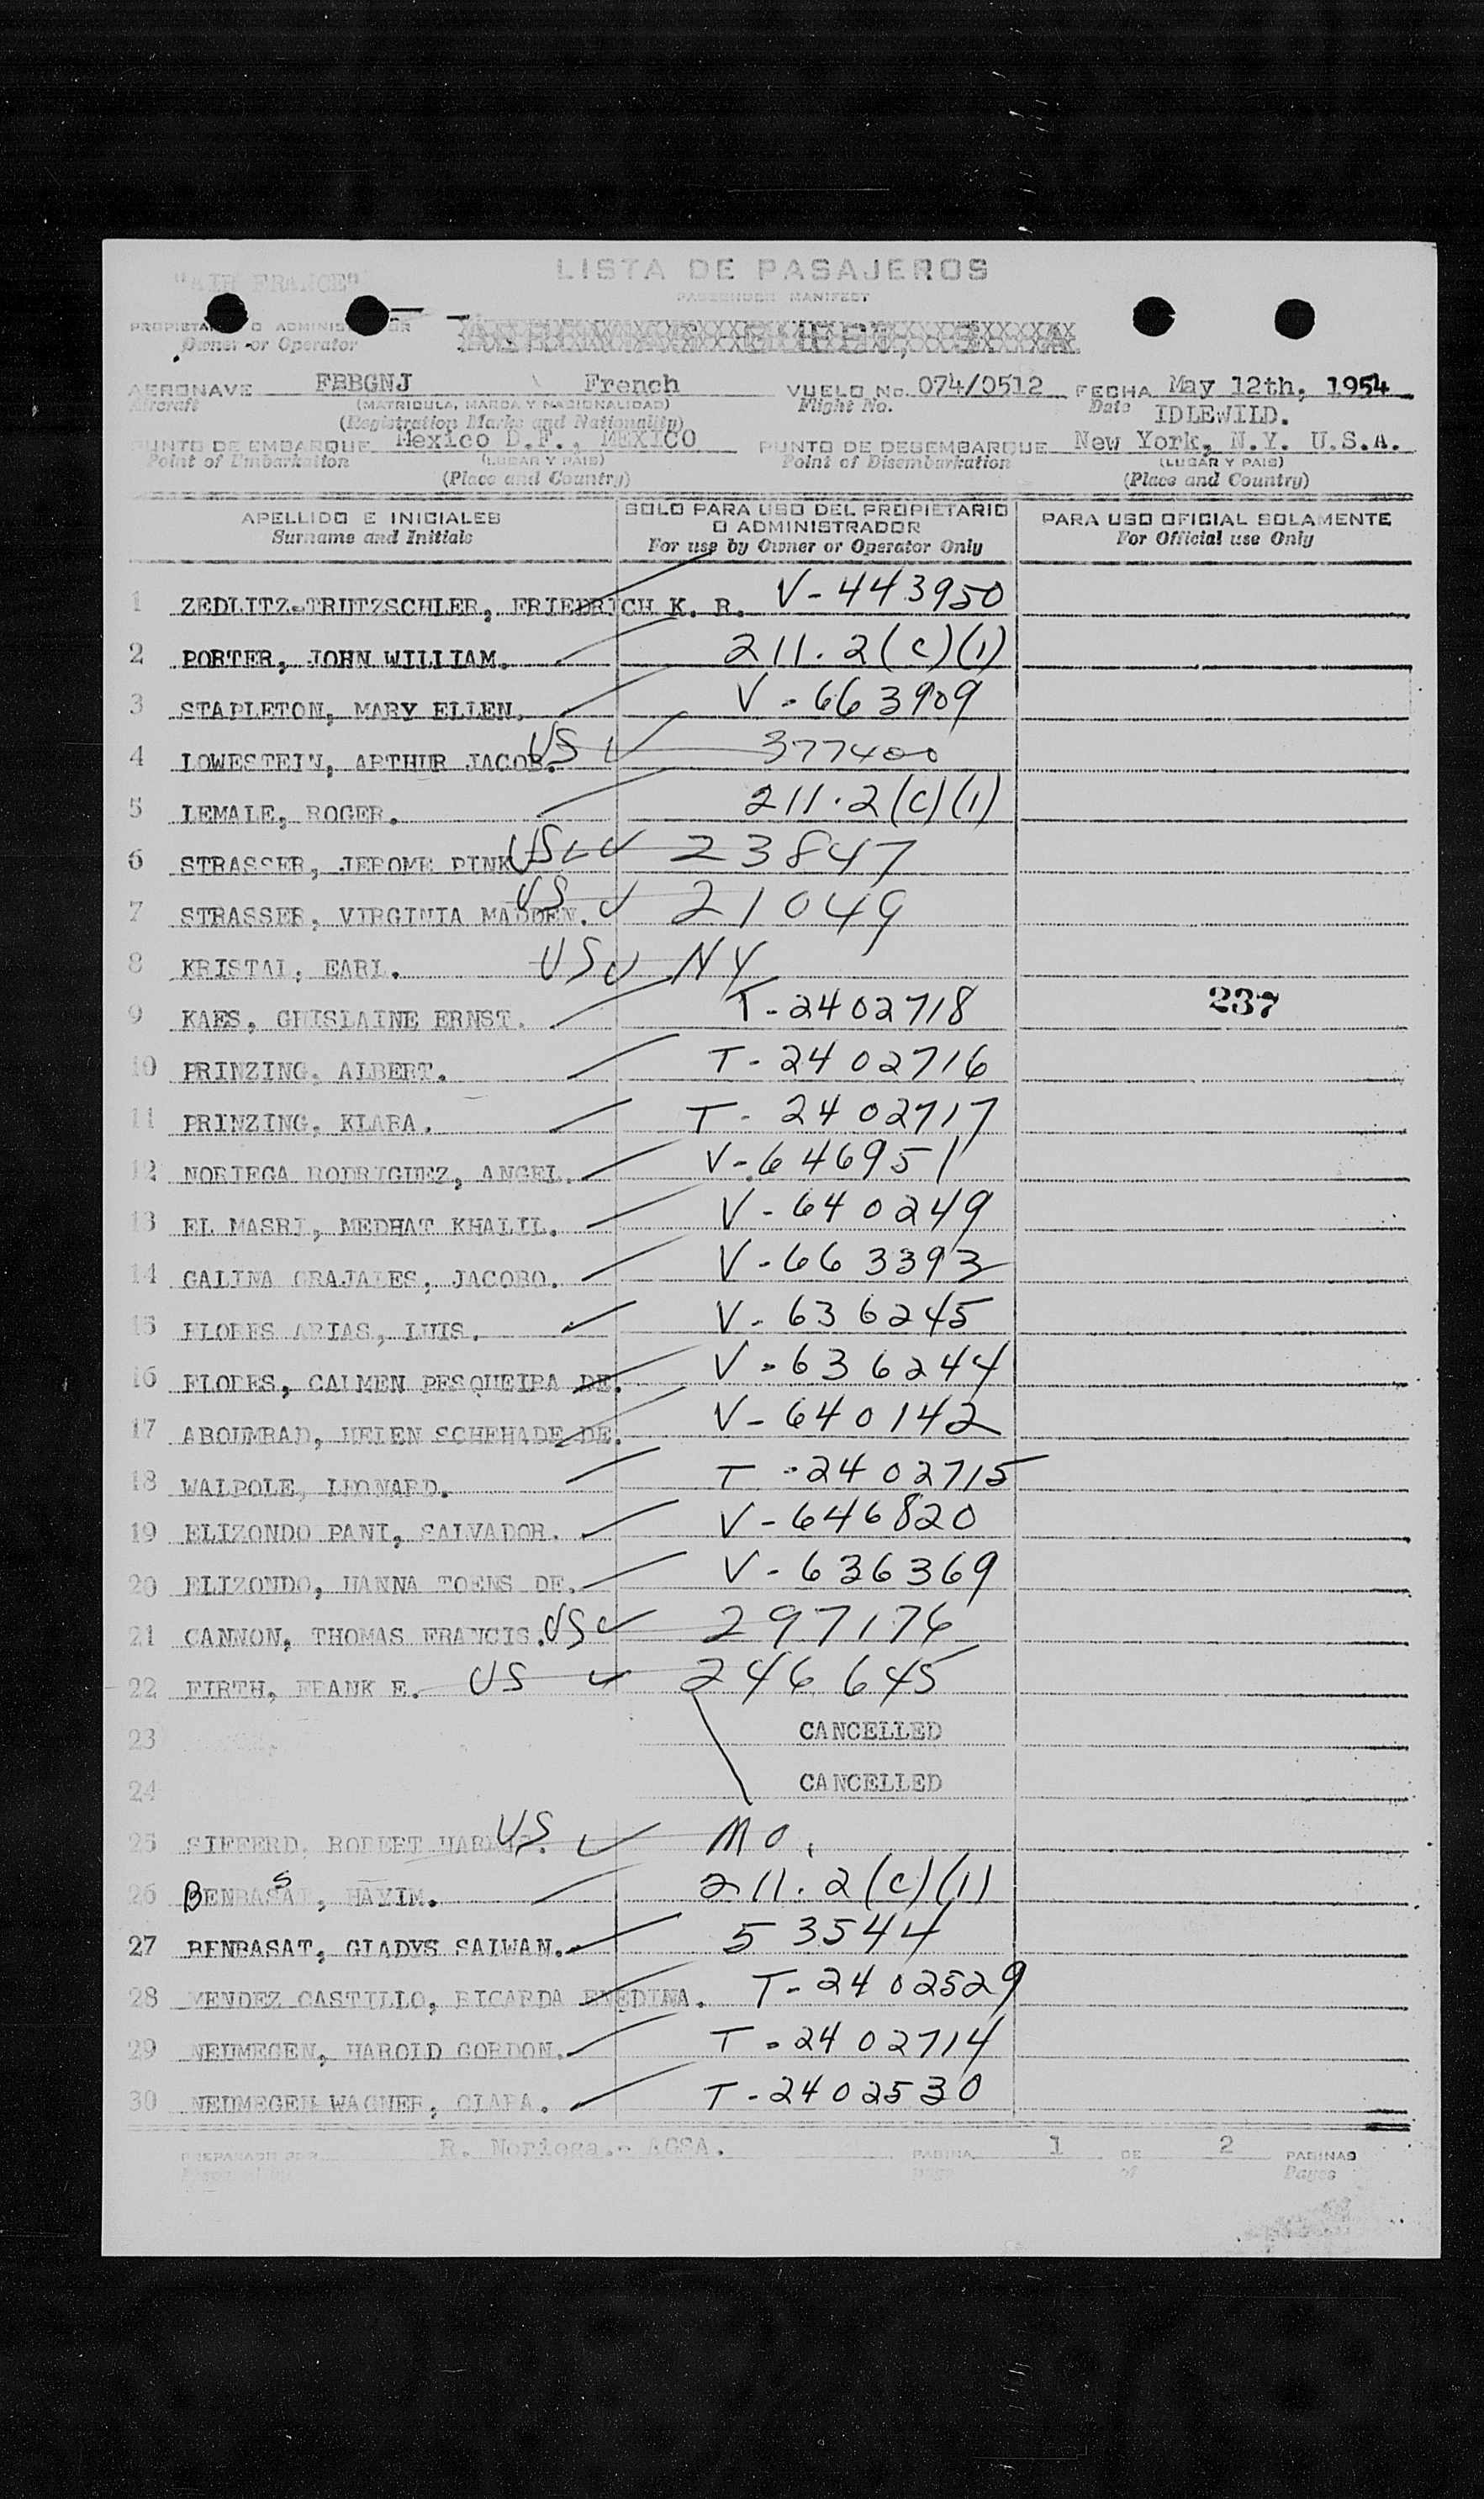 LISTA DE PASAJEROS
"AIR FRANCE"
PASSENGER MANIFEST
PROPIETARIO O ADMINISTRADOR
Owner or Operator
AERONAVE FBBGNJ French VUELO No. 074/0512 FECHA May 12th, 1954
Aircraft (MATRICULA, MARCA Y NACIONALIDAD) Flight No. Date IDLEWILD.
(Registration Marks and Nationality)
PUNTO DE EMBARQUE Mexico D.F., MEXICO PUNTO DE DESEMBARQUE New York, N.Y. U.S.A.
Point of Embarkation (LUGAR Y PAIS) Point of Disembarkation (LUGAR Y PAIS)
(Place and Country) (Place and Country)
APELLIDO E INICIALES SOLO PARA USO DEL PROPIETARIO O ADMINISTRADOR PARA USO OFICIAL SOLAMENTE
Surname and Initials For use by Owner or Operator Only For Official use Only
1 ZEDLITZ-TRUTZSCHLER, FRIEDRICH K. R. V-443950
2 PORTER, JOHN WILLIAM. 211.2(c)(1)
3 STAPLETON, MARY ELLEN. V-663909
4 LOWESTEIN, ARTHUR JACOB. US 377400
5 LEMALE, ROGER. 211.2(c)(1)
6 STRASSER, JEROME PINK US 23847
7 STRASSER, VIRGINIA MADDEN. US 21049
8 KRISTAL, EARL. US NY
9 KAES, GHISLAINE ERNST. T-2402718 237
10 PRINZING, ALBERT. T-2402716
11 PRINZING, KLARA. T-2402717
12 NORIEGA RODRIGUEZ, ANGEL. V-646951
13 EL MASRI, MEDHAT KHALIL. V-640249
14 GALINA GRAJALES, JACOBO. V-663393
15 FLORES ARIAS, LUIS. V-636245
16 FLORES, CALMEN PESQUEIRA DE. V-636244
17 ABOUMRAD, HELEN SCHEHADE DE. V-640142
18 WALPOLE, LEONARD. T-2402715
19 ELIZONDO PANI, SALVADOR. V-646820
20 ELIZONDO, HANNA TOENS DE. V-636369
21 CANNON, THOMAS FRANCIS. US 297176
22 FIRTH, FRANK E. US 246645
23 CANCELLED
24 CANCELLED
25 SIFFERD, ROBERT US MO.
26 BENBASAT, HAYIM. 211.2(c)(1)
27 BENBASAT, GLADYS SALWAN. 53544
28 MENDEZ CASTILLO, RICARDA ENEDINA. T-2402529
29 NEUMEGEN, HAROLD GORDON. T-2402714
30 NEUMEGEN WAGNER, CLARA. T-2402530
PREPARADO POR R. Noriega.- AGSA. PAGINA 1 DE 2 PAGINAS
Prepared by Page of Pages